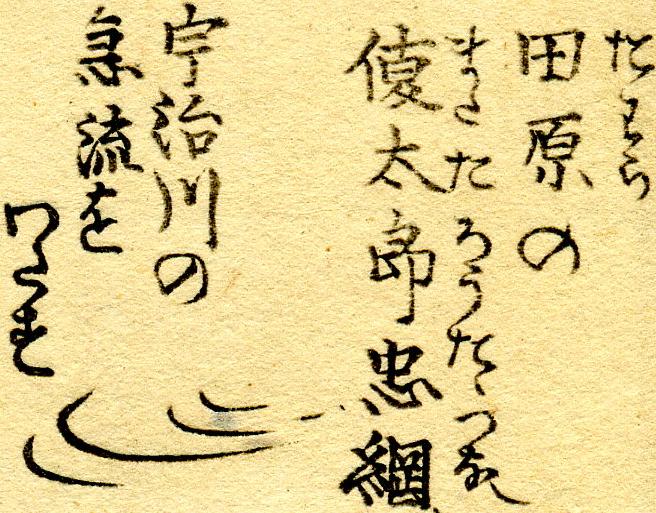 たはら
田原の
またたらうたゞつな
俊太郎忠綱
宇治川の
急流を
わたす